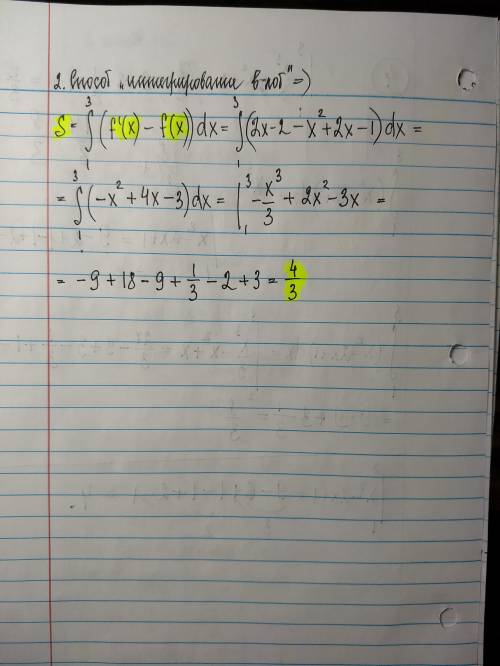 2. способ „интегрирование в-лот" =)
S = ∫₁³ (f'(x) - f(x)) dx = ∫₁³ (2x-2-x²+2x-1) dx =
= ∫₁³ (-x²+4x-3) dx = |₁³ -x³/3 + 2x² - 3x =
= -9+18-9+1/3-2+3 = 4/3